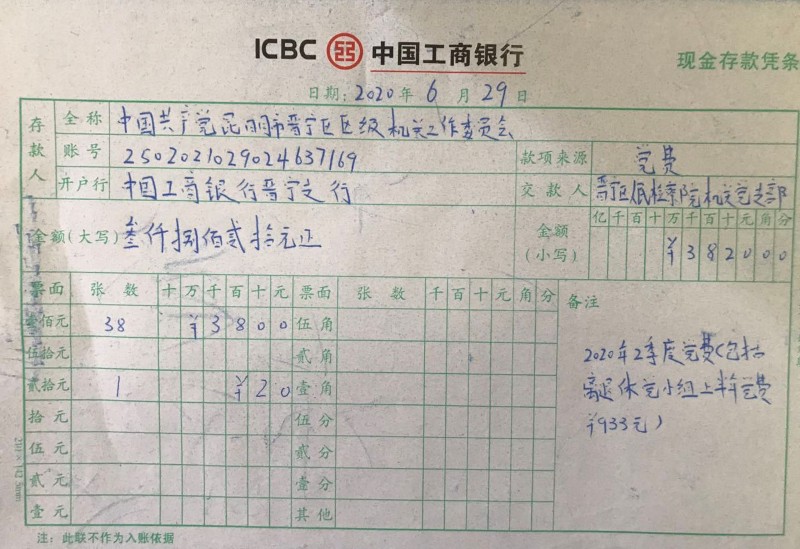 ICBC 中国工商银行
现金存款凭条
日期:2020年6月29日
存款人
全称 中国共产党昆明市晋宁区区级机关工作委员会
账号 2502021029024637169
款项来源 党费
开户行 中国工商银行晋宁支行
交款人 晋宁区人民检察院机关党支部
金额(大写) 叁仟捌佰贰拾元正
金额(小写)
亿千百十万千百十元角分
¥382000
票面 张数 十万千百十元 票面 张数 千百十元角分 备注
壹佰元 38 ¥3800 伍角
伍拾元 贰角
贰拾元 1 ¥20 壹角
拾元 伍分
伍元 贰分
贰元 壹分
壹元 其他
2020年2季度党费(包括
离退休党小组上半年党费
¥933元)
注:此联不作为入账依据